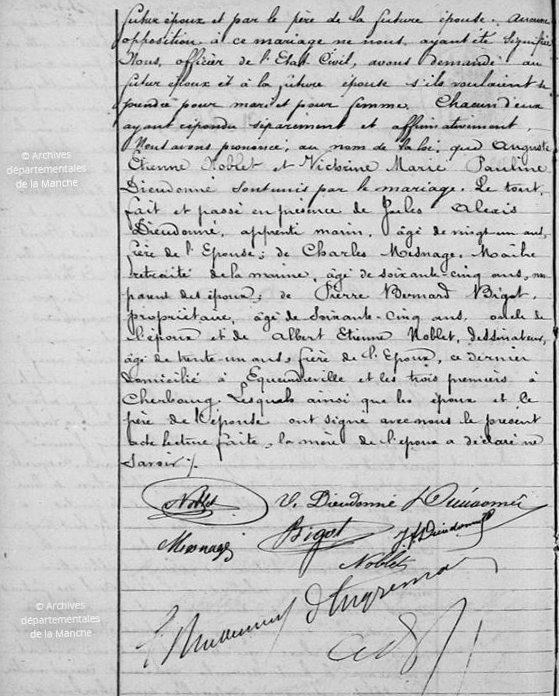 futur époux et par le père de la future épouse. Aucune
opposition à ce mariage ne nous ayant été signifiée
Nous, officier de l'Etat Civil, avons demandé au
futur époux et à la future épouse s'ils voulaient se
prendre pour mari et pour femme. Chacun d'eux
ayant répondu séparément et affirmativement,
Nous avons prononcé, au nom de la loi, que Auguste
Etienne Noblet et Victorine Marie Pauline
Dieudonné sont unis par le mariage. Le tout
fait et passé en présence de Jules Alexis
Dieudonné, apprenti marin, âgé de vingt-un ans,
frère de l'Epouse; de Charles Mesnage, Maître
retraité de la marine, âgé de soixante-cinq ans, non
parent des époux; de Pierre Bernard Bigot,
propriétaire, âgé de soixante-cinq ans, oncle de
l'époux et de Albert Etienne Noblet, dessinateur,
âgé de trente-un ans, frère de l'Epoux, ce dernier
domicilié à Equeurdreville et les trois premiers à
Cherbourg. Lesquels ainsi que les époux et le
père de l'épouse ont signé avec nous le présent
acte lecture faite, la mère de l'époux a déclaré ne
savoir ./.
Noblet V. Dieudonné Dieudonné
Mesnage Bigot J A Dieudonné
Noblet
© Archives
départementales
de la Manche
© Archives
départementales
de la Manche